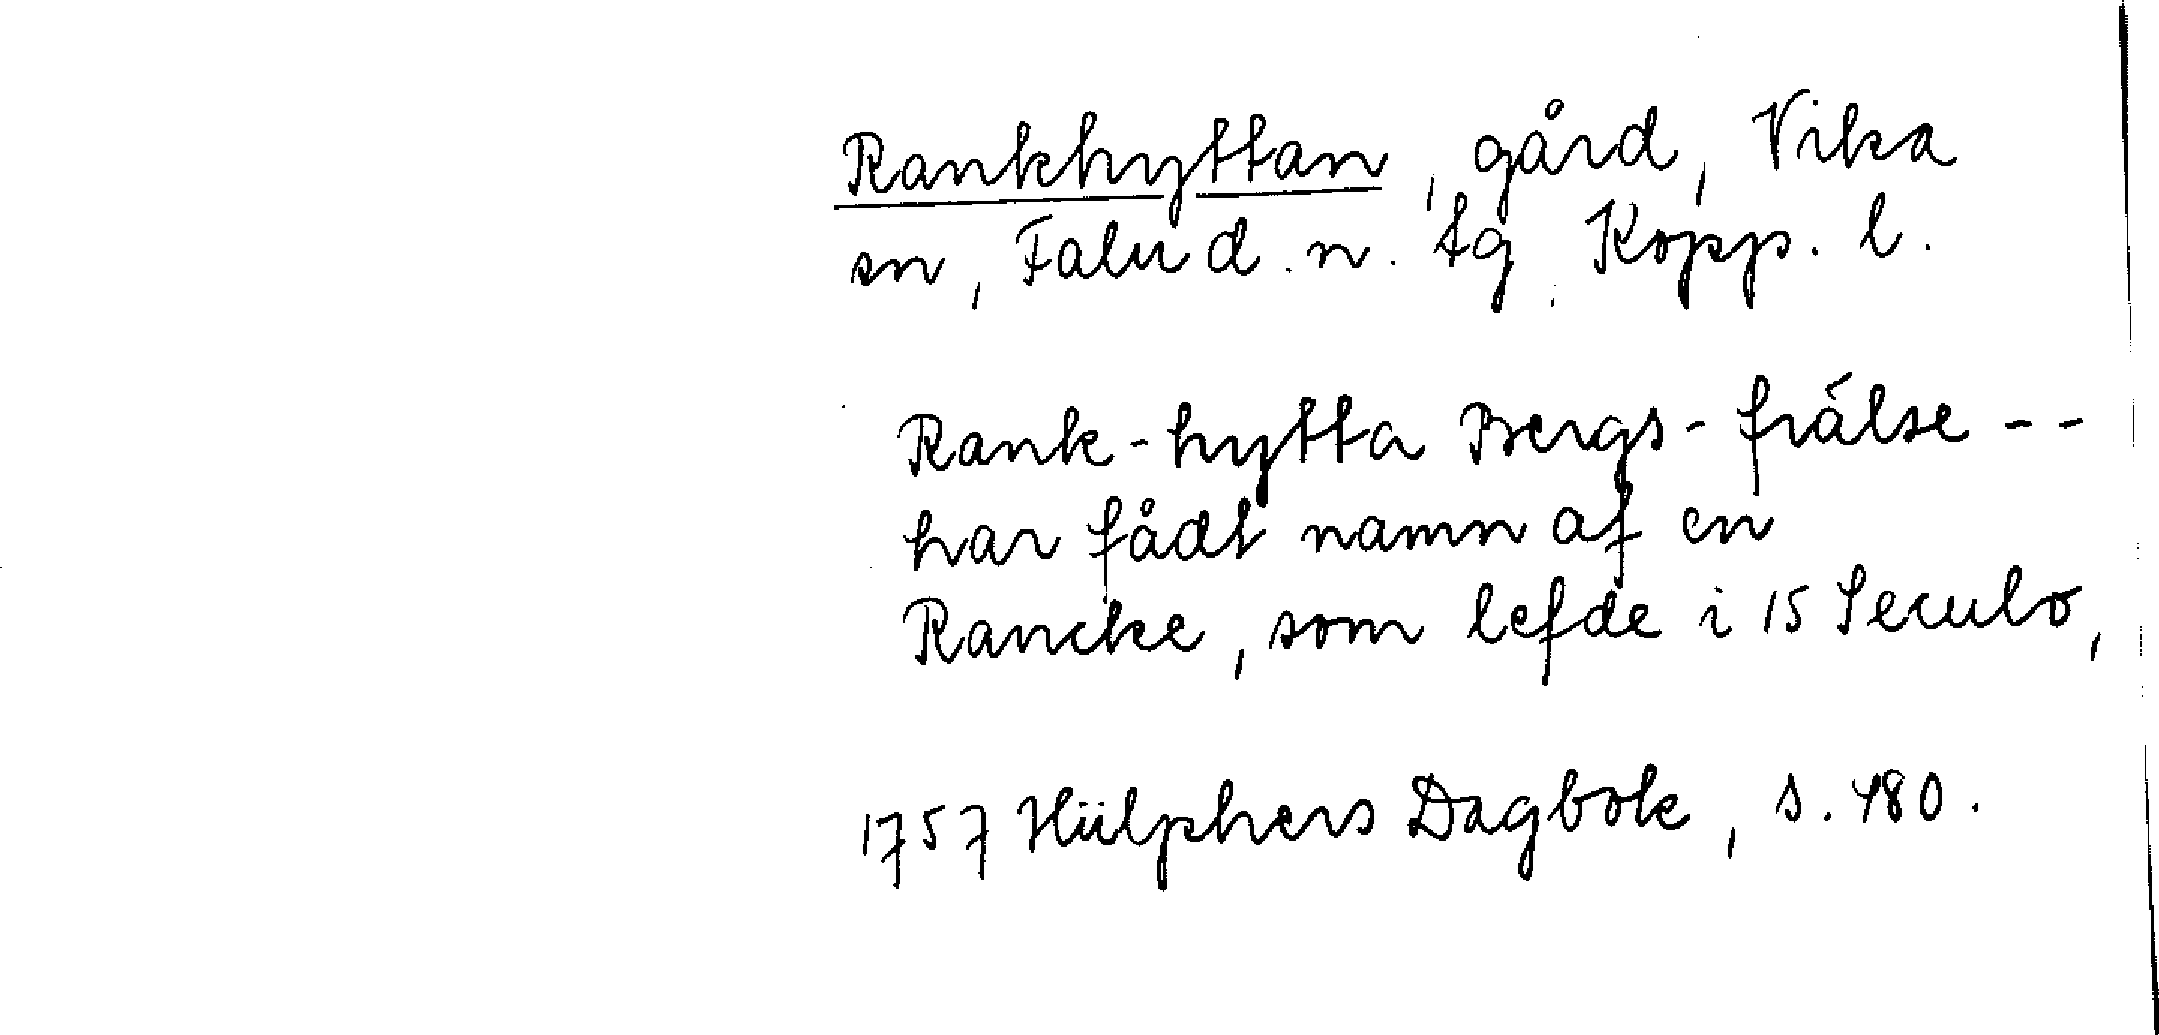 Rankhyttan, gård, Vika
sn, Falu d. n. tg, Kopp. l.
Rank-hytta Bergs-frälse --
har fådt namn af en
Rancke, som lefde i 15 Seculo,
1757 Hülphers Dagbok, s. 480.